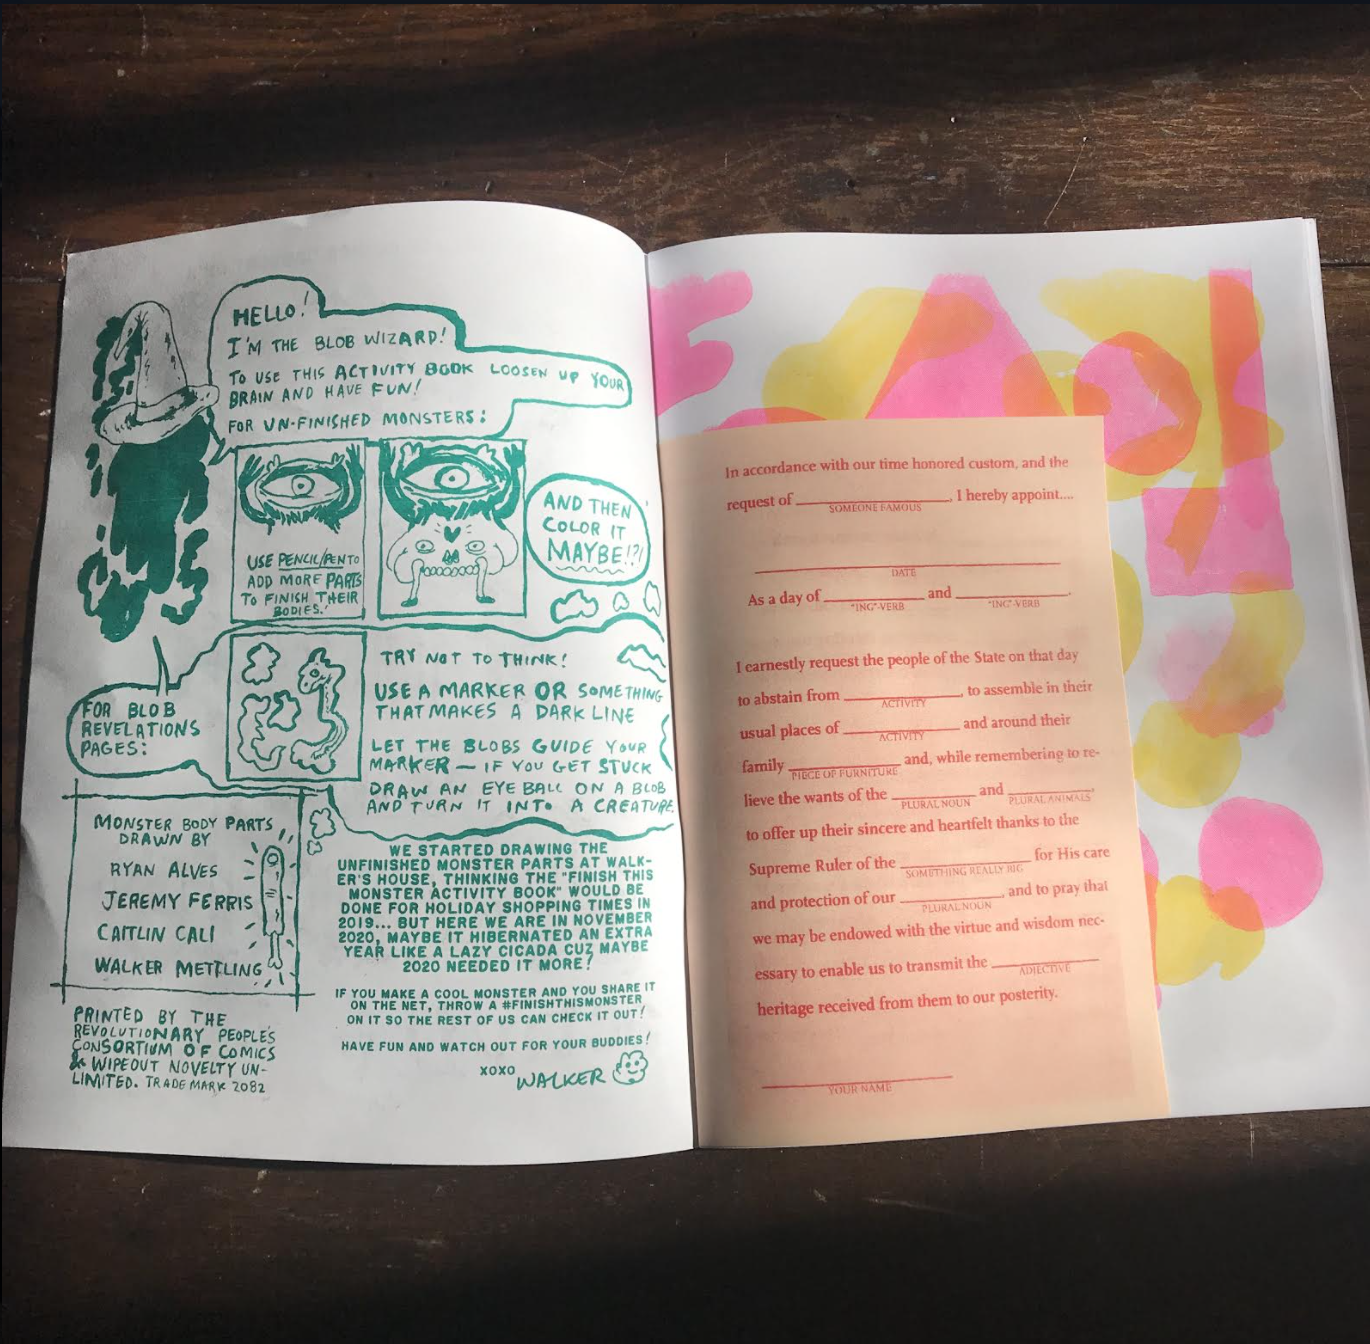 HELLO!
I'M THE BLOB WIZARD!
TO USE THIS ACTIVITY BOOK LOOSEN UP YOUR
BRAIN AND HAVE FUN!
FOR UN-FINISHED MONSTERS:
USE PENCIL/PEN TO
ADD MORE PARTS
TO FINISH THEIR
BODIES.
AND THEN
COLOR IT
MAYBE!?!
FOR BLOB
REVELATIONS
PAGES:
TRY NOT TO THINK!
USE A MARKER OR SOMETHING
THAT MAKES A DARK LINE
LET THE BLOBS GUIDE YOUR
MARKER — IF YOU GET STUCK
DRAW AN EYE BALL ON A BLOB
AND TURN IT INTO A CREATURE
MONSTER BODY PARTS
DRAWN BY
RYAN ALVES
JEREMY FERRIS
CAITLIN CALI
WALKER METTLING
PRINTED BY THE
REVOLUTIONARY PEOPLE'S
CONSORTIUM OF COMICS
& WIPEOUT NOVELTY UN-
LIMITED. TRADE MARK 2082
WE STARTED DRAWING THE
UNFINISHED MONSTER PARTS AT WALK-
ER'S HOUSE, THINKING THE "FINISH THIS
MONSTER ACTIVITY BOOK" WOULD BE
DONE FOR HOLIDAY SHOPPING TIMES IN
2019... BUT HERE WE ARE IN NOVEMBER
2020, MAYBE IT HIBERNATED AN EXTRA
YEAR LIKE A LAZY CICADA CUZ MAYBE
2020 NEEDED IT MORE?
IF YOU MAKE A COOL MONSTER AND YOU SHARE IT
ON THE NET, THROW A #FINISHTHISMONSTER
ON IT SO THE REST OF US CAN CHECK IT OUT!
HAVE FUN AND WATCH OUT FOR YOUR BUDDIES!
XOXO WALKER
In accordance with our time honored custom, and the
request of ____, I hereby appoint....
SOMEONE FAMOUS
DATE
As a day of ____ and ____.
"ING"-VERB "ING"-VERB
I earnestly request the people of the State on that day
to abstain from ____, to assemble in their
ACTIVITY
usual places of ____ and around their
ACTIVITY
family ____ and, while remembering to re-
PIECE OF FURNITURE
lieve the wants of the ____ and ____,
PLURAL NOUN PLURAL ANIMALS
to offer up their sincere and heartfelt thanks to the
Supreme Ruler of the ____ for His care
SOMETHING REALLY BIG
and protection of our ____, and to pray that
PLURAL NOUN
we may be endowed with the virtue and wisdom nec-
essary to enable us to transmit the ____
ADJECTIVE
heritage received from them to our posterity.
YOUR NAME